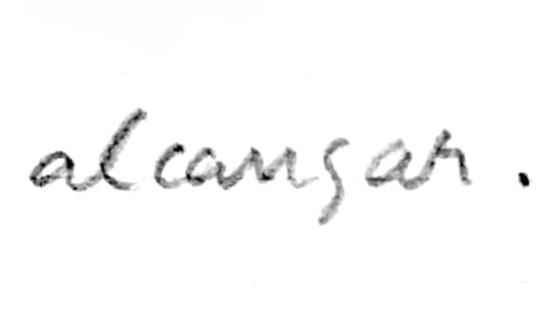 alcançar.